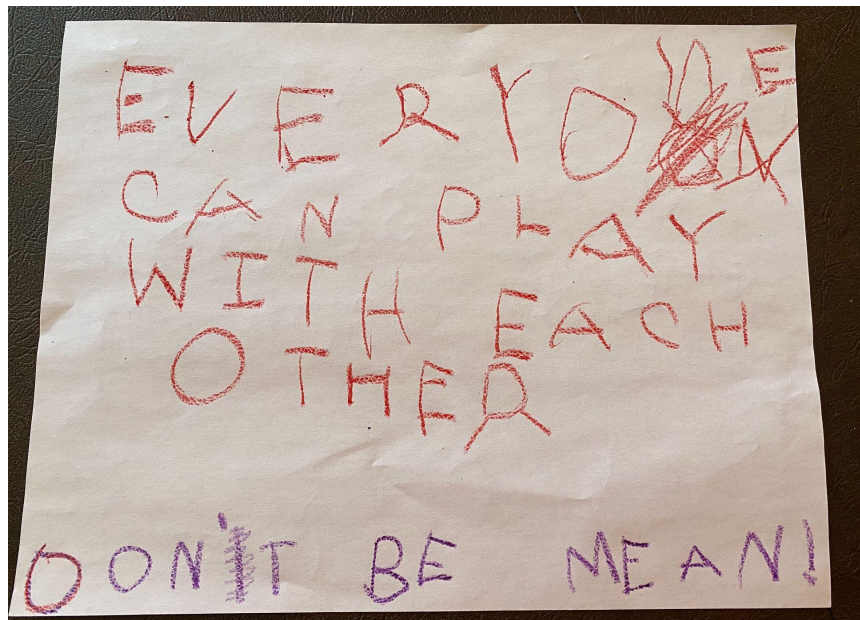 EVERYONE
CAN PLAY
WITH EACH
OTHER
DON'T BE MEAN!